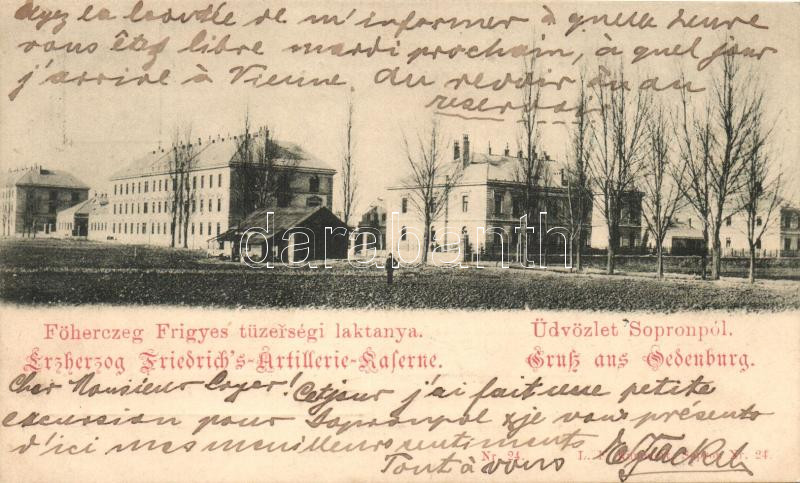 Ayez la bontée de m'informer à quelle heure
vous êtes libre mardi prochain, à quel jour
j'arrive à Vienne. Au revoir
darabanth.com
Főherczeg Frigyes tüzerségi laktanya.
Üdvözlet Sopronpól.
Erzherzog Friedrich's-Artillerie-Kaserne.
Gruß aus Oedenburg.
Cher Monsieur! Cet jour j'ai fait une petite
excursion pour Sopronpol & je vous présente
d'ici mes meilleurs sentiments
Nr. 24.
Tout à vous
Nr. 24.